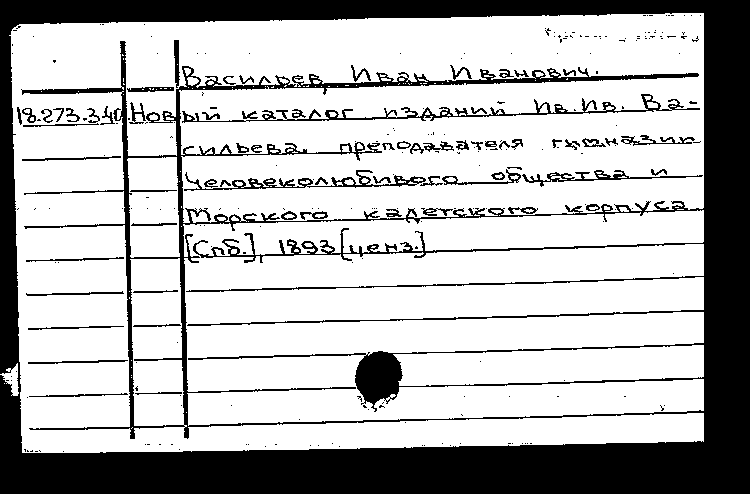 Васильев, Иван Иванович.
18.273.340 Новый каталог изданий Ив. Ив. Ва-
сильева, преподавателя гимназии
Человеколюбивого общества и
Морского кадетского корпуса
[Спб.], 1893 [ценз.]